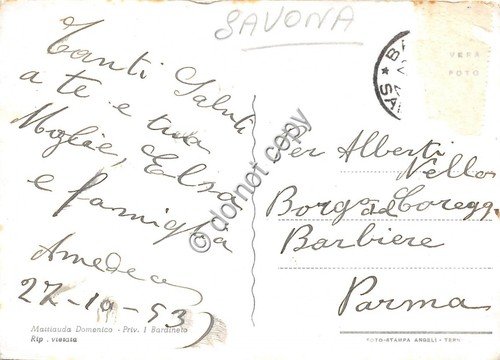 SAVONA
Tanti Saluti
a te e tua
Moglie, Elsa
e famiglia
Amedea
27-10-53
Mattiauda Domenico - Priv. 1 Bardineto
Rip. vietata
VERA
FOTO
Per Alberti
Nello
Borgo del Coregg.
Barbiere
Parma
FOTO-STAMPA ANGELI - TERNI
donot copy